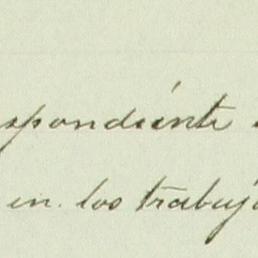 spondiente
en los trabaj